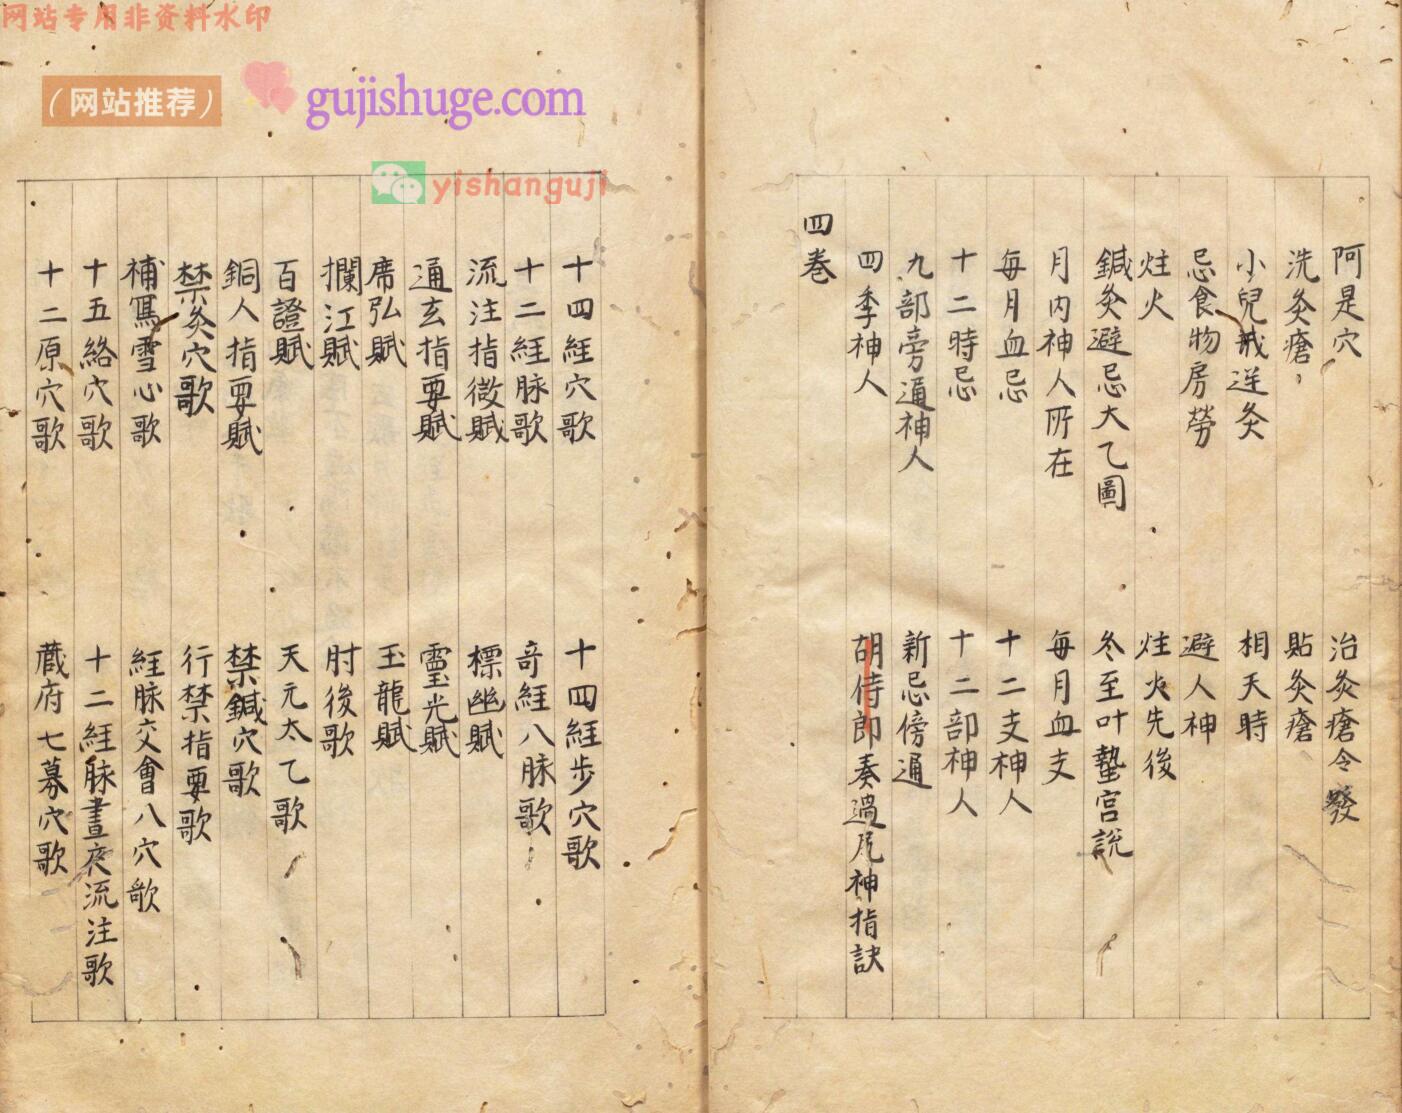 网站专用非资料水印
（网站推荐）
gujishuge.com
yishanguji
阿是穴　治灸瘡令發
洗灸瘡　貼灸瘡
小兒戒逆灸　相天時
忌食物房勞　避人神
炷火　炷火先後
鍼灸避忌大乙圖　冬至叶蟄宮說
月內神人所在　每月血支
每月血忌　十二支神人
十二時忌　十二部神人
九部旁通神人　新忌傍通
四季神人　胡侍郎奏過尻神指訣
四卷
十四經穴歌　十四經步穴歌
十二經脉歌　奇經八脉歌
流注指微賦　標幽賦
通玄指要賦　靈光賦
席弘賦　玉龍賦
攔江賦　肘後歌
百證賦　天元太乙歌
銅人指要賦　禁鍼穴歌
禁灸穴歌　行禁指要歌
補寫雪心歌　經脉交會八穴歌
十五絡穴歌　十二經脉晝夜流注歌
十二原穴歌　藏府七募穴歌